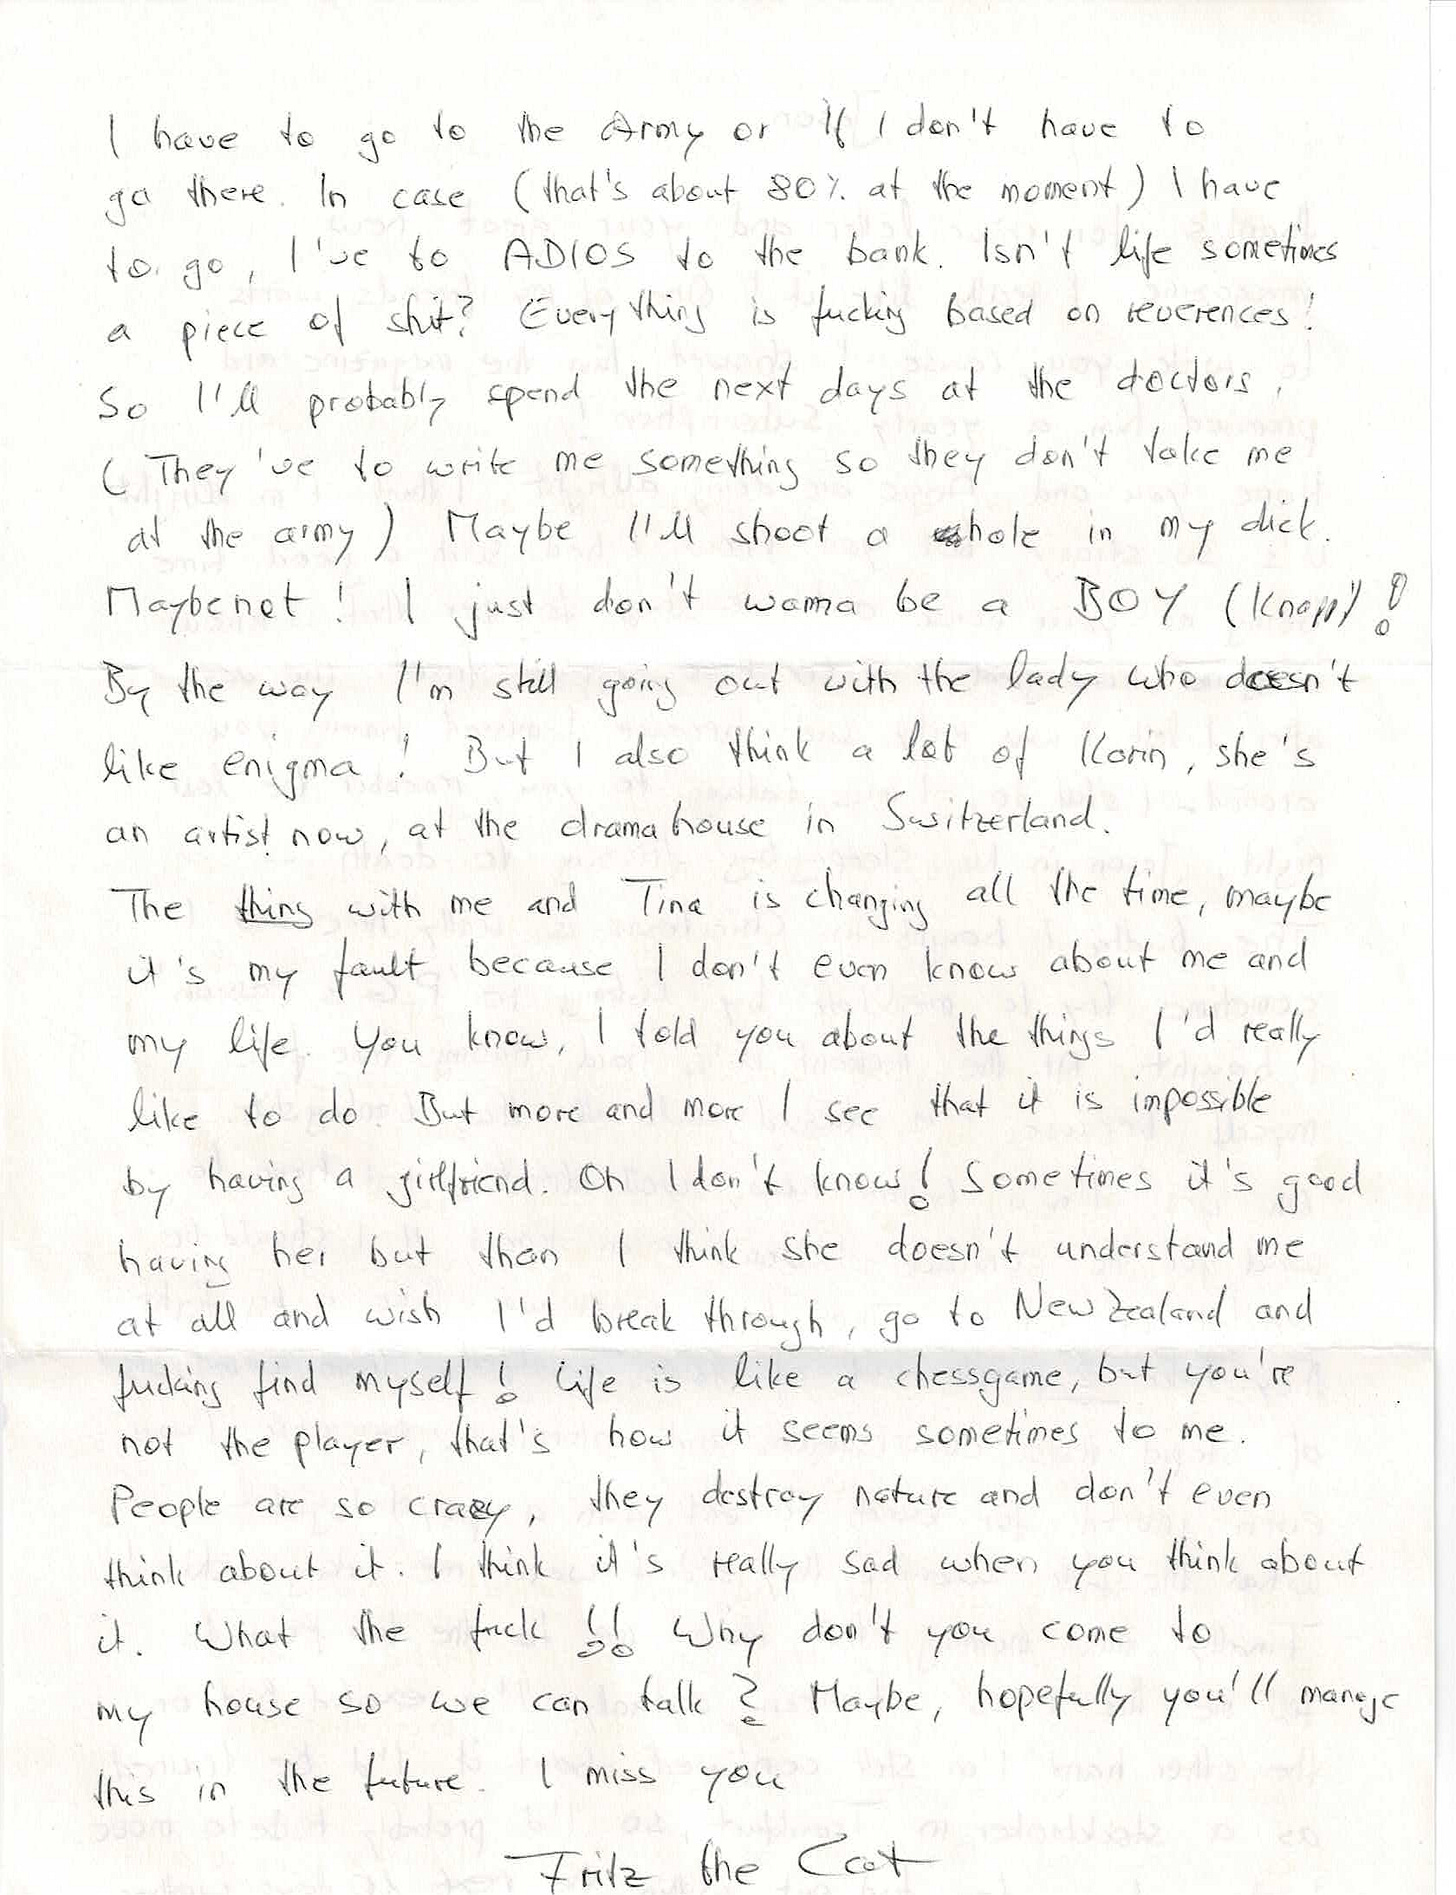 I have to go to the Army or If I don't have to
go there. In case (that's about 80% at the moment) I have
to go, I've to ADIOS to the bank. Isn't life sometimes
a piece of shit? Everything is fucking based on reverences!
So I'll probably spend the next days at the doctors,
(They've to write me something so they don't take me
at the army) Maybe I'll shoot a hole in my dick.
Maybe not! I just don't wanna be a BOY (Knapp)!
By the way I'm still going out with the lady who doesn't
like enigma! But I also think a lot of Karin, she's
an artist now, at the dramahouse in Switzerland.
The thing with me and Tina is changing all the time, maybe
it's my fault because I don't even know about me and
my life. You know, I told you about the things I'd really
like to do. But more and more I see that it is impossible
by having a girlfriend. Oh I don't know! Sometimes it's good
having her but then I think she doesn't understand me
at all and wish I'd break through, go to New Zealand and
fucking find myself! Life is like a chessgame, but you're
not the player, that's how it seems sometimes to me.
People are so crazy, they destroy nature and don't even
think about it. I think it's really sad when you think about
it. What the fuck !! Why don't you come to
my house so we can talk? Maybe, hopefully you'll manage
this in the future. I miss you
Fritz the Cat